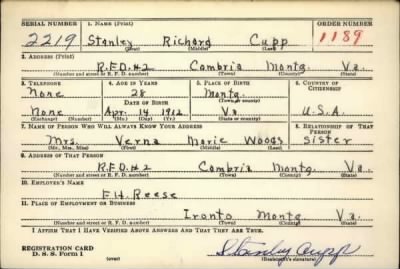 SERIAL NUMBER 1. NAME (Print) ORDER NUMBER
2219 Stanley Richard Cupp 1189
(First) (Middle) (Last)
2. ADDRESS (Print)
R.F.D. #2 Cambria Montg. Va.
(Number and street or R. F. D. number) (Town) (County) (State)
3. TELEPHONE 4. AGE IN YEARS 5. PLACE OF BIRTH 6. COUNTRY OF CITIZENSHIP
None 28 Montg.
DATE OF BIRTH (Town or county)
None Apr. 14 1912 Va U.S.A.
(Exchange) (Number) (Mo.) (Day) (Yr.) (State or country)
7. NAME OF PERSON WHO WILL ALWAYS KNOW YOUR ADDRESS 8. RELATIONSHIP OF THAT PERSON
Mrs. Verna Marie Woods Sister
(Mr., Mrs., Miss) (First) (Middle) (Last)
9. ADDRESS OF THAT PERSON
R.F.D. #2 Cambria Montg. Va.
(Number and street or R. F. D. number) (Town) (County) (State)
10. EMPLOYER'S NAME
F.H. Reese
11. PLACE OF EMPLOYMENT OR BUSINESS
Ironto Montg. Va.
(Number and street or R. F. D. number) (Town) (County) (State)
I AFFIRM THAT I HAVE VERIFIED ABOVE ANSWERS AND THAT THEY ARE TRUE.
REGISTRATION CARD
D. S. S. Form 1 (over) Stanley Cupp
(Registrant's signature)